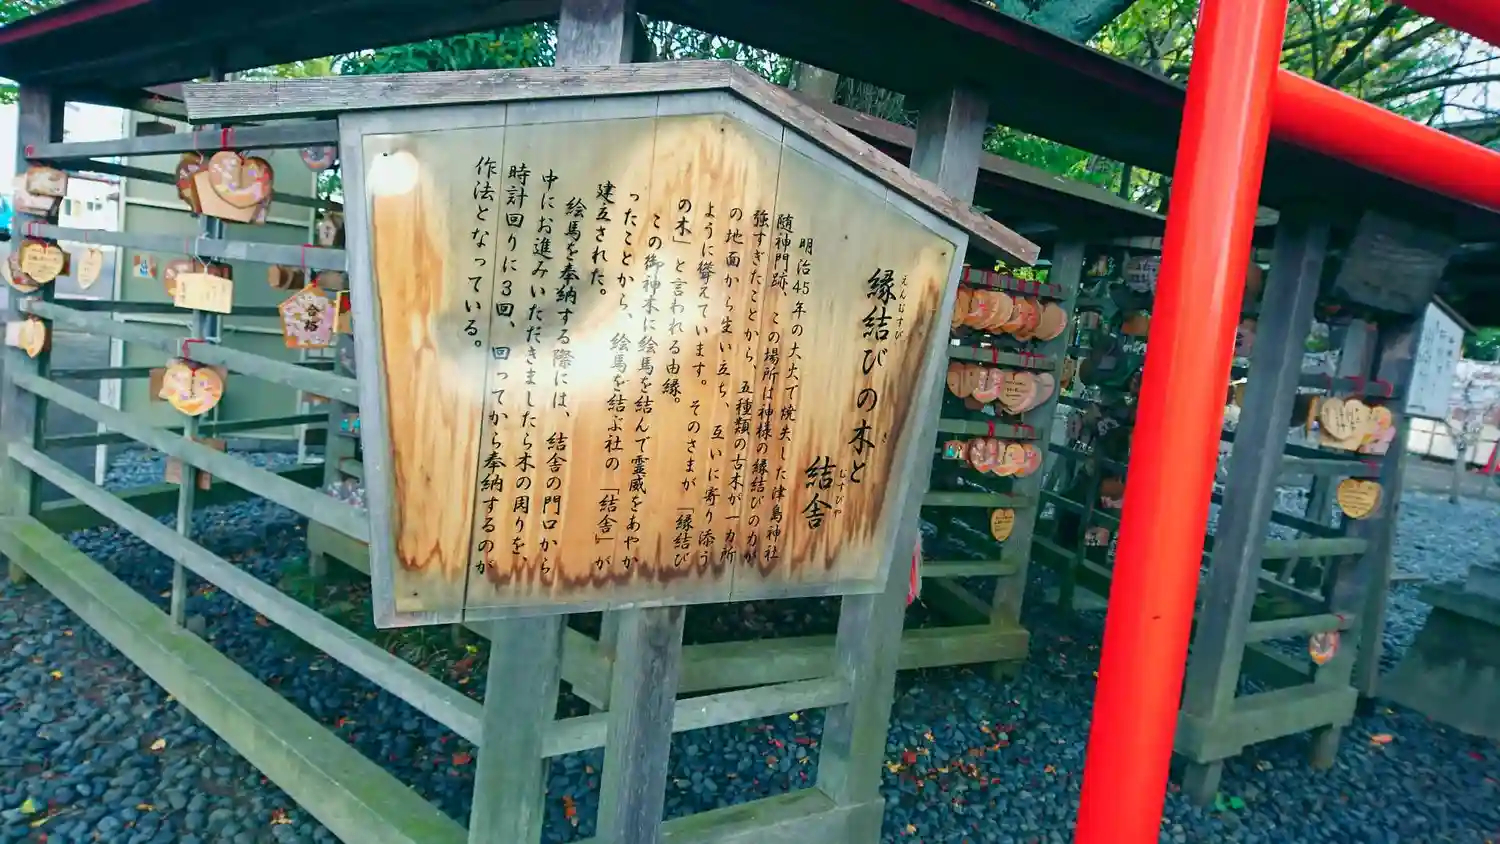 えんむすび
縁結びの木と
き
結舎
むすびや
明治45年の大火で焼失した津島神社
随神門跡、この場所は神様の縁結びの力が
強すぎたことから、五種類の古木が一カ所
の地面から生い立ち、互いに寄り添う
ように聳えています。そのさまが「縁結び
の木」と言われる由縁。
この御神木に絵馬を結んで霊威をあやか
ったことから、絵馬を結ぶ社の「結舎」が
建立された。
絵馬を奉納する際には、結舎の門口から
中にお進みいただきましたら木の周りを、
時計回りに3回、回ってから奉納するのが
作法となっている。
合格